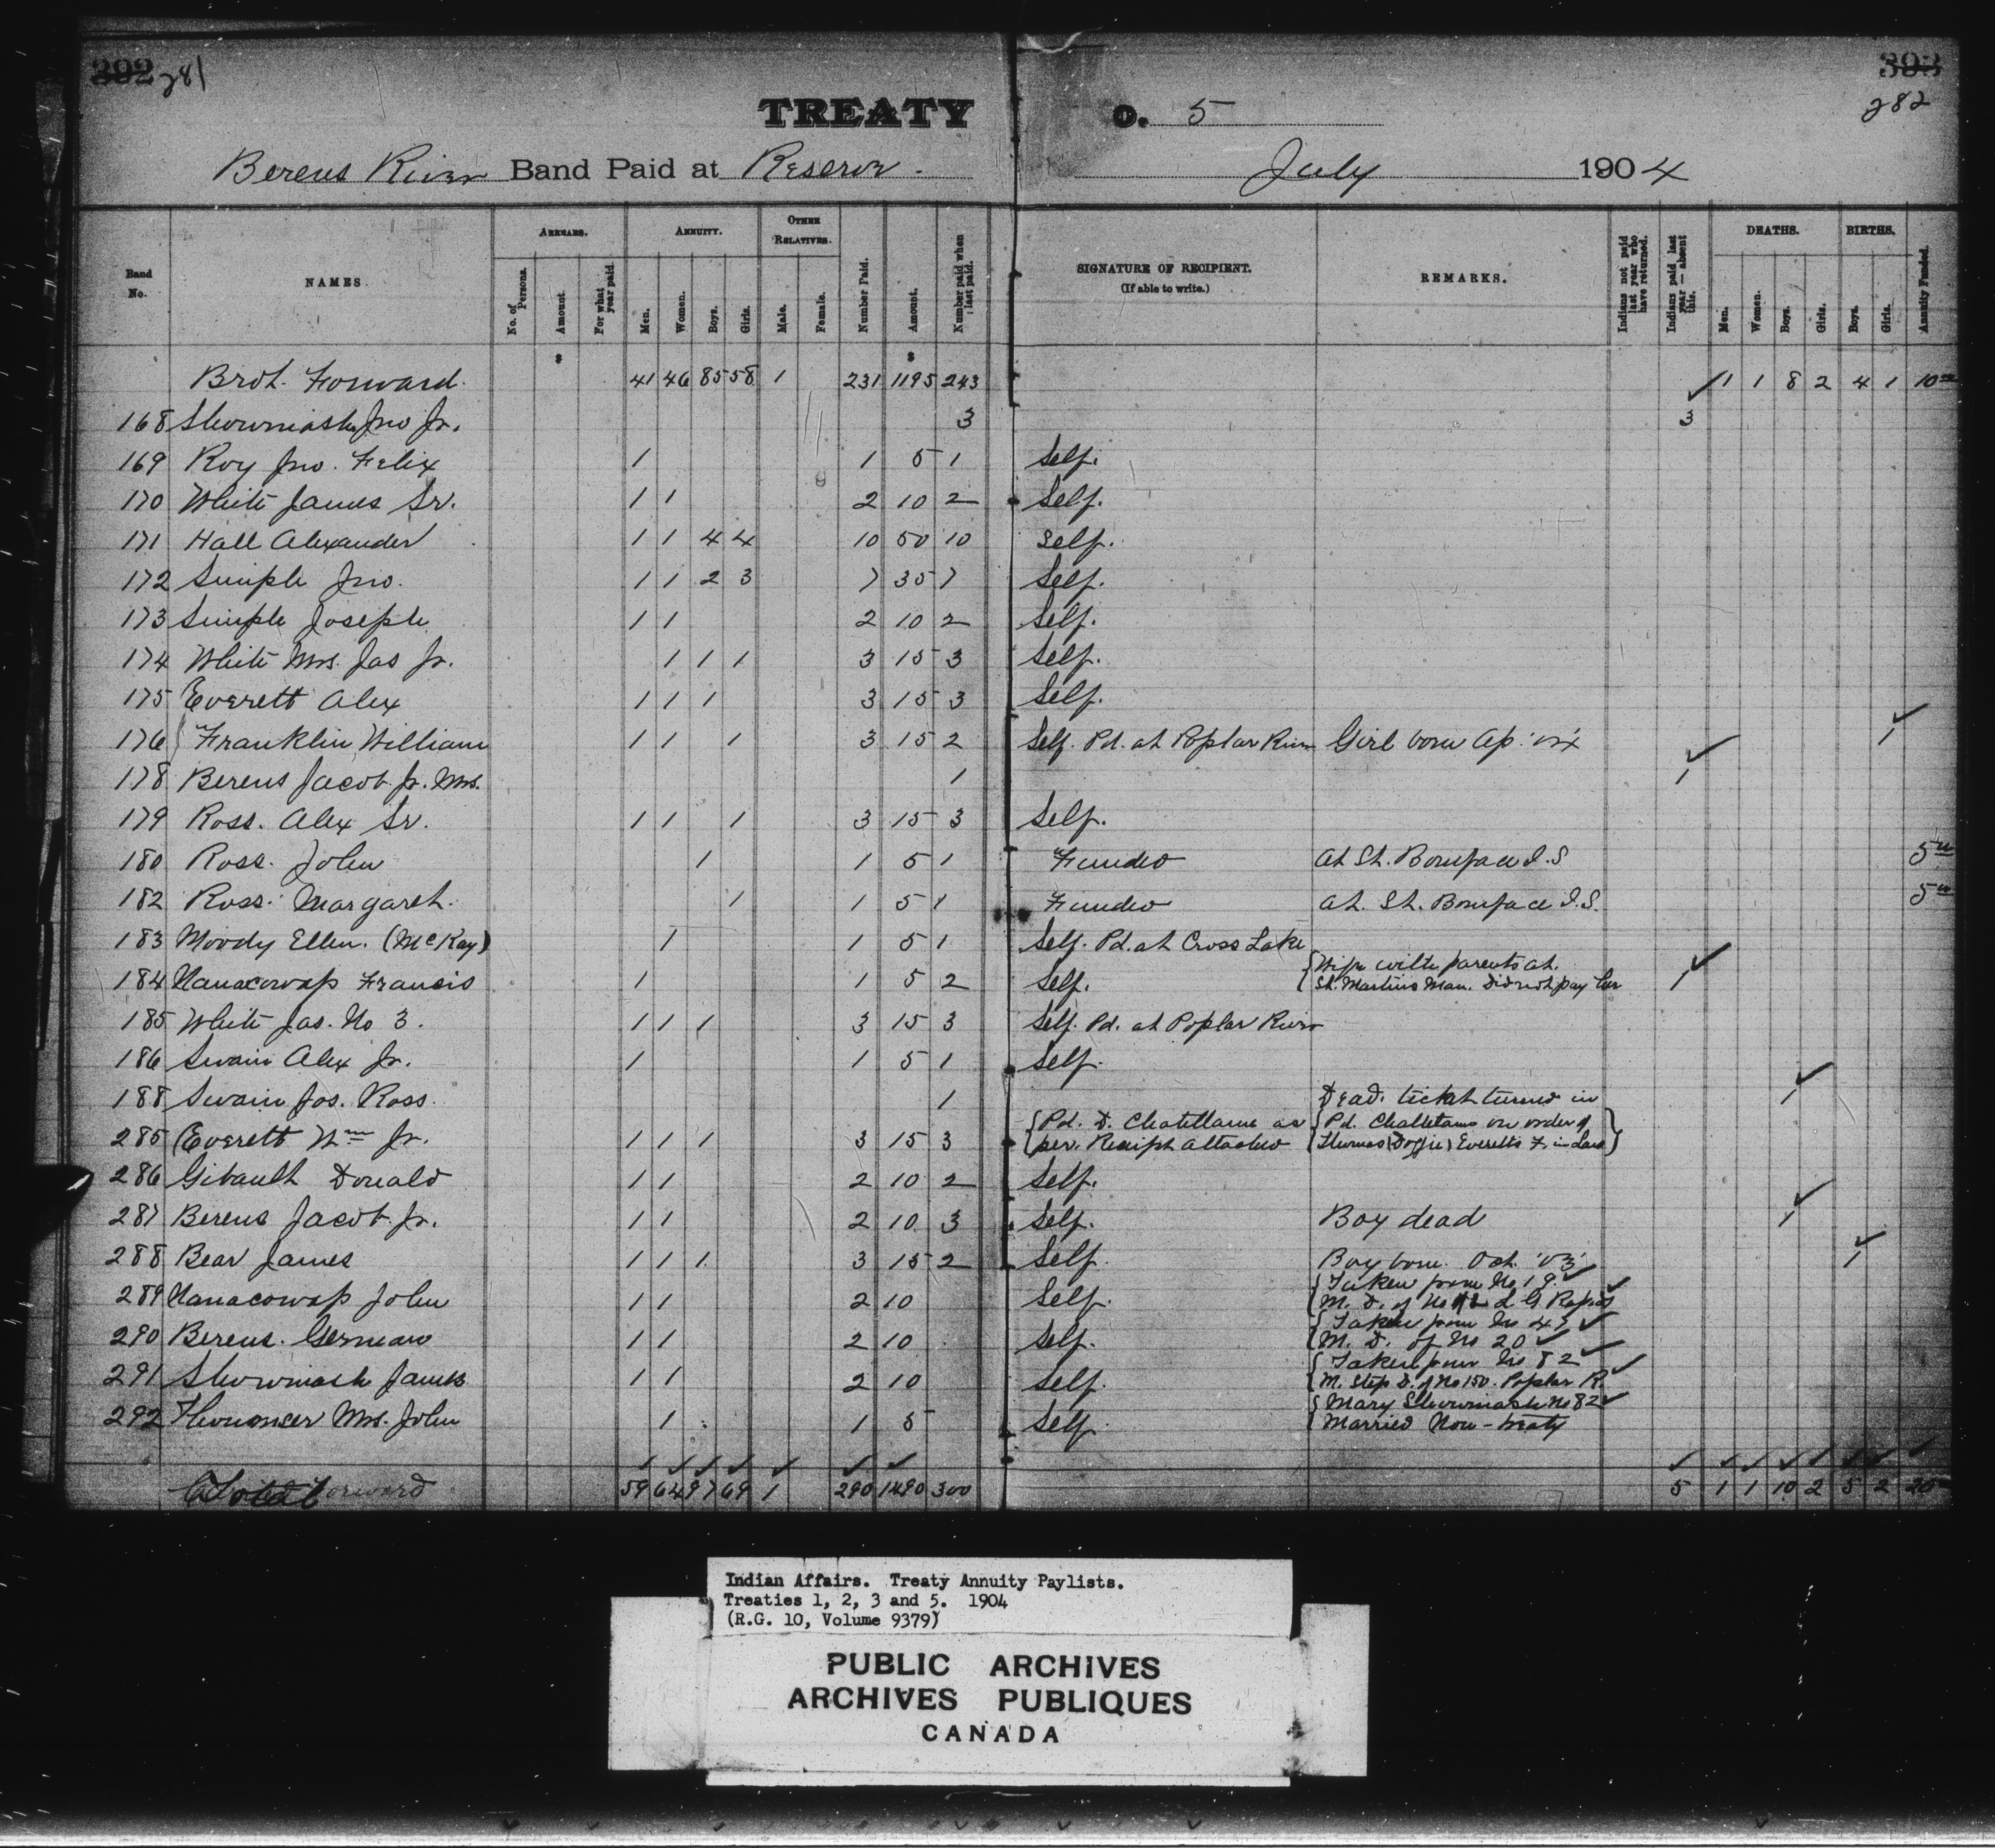 392 281
393
282
TREATY o. 5
Berens River Band Paid at Reserve. July 1904
Band No. NAMES. ARREARS. No. of Persons. Amount. For what year paid. ANNUITY. Men. Women. Boys. Girls. OTHER RELATIVES. Male. Female. Number Paid. Amount. Number paid when last paid. SIGNATURE OF RECIPIENT. (If able to write.) REMARKS. Indians not paid last year who have returned. Indians paid last year — absent this. DEATHS. Men. Women. Boys. Girls. BIRTHS. Boys. Girls. Annuity Funded.
$ $
Brot. Forward. 41 46 85 58 1 231 1195 243 ✓ 1 1 8 2 4 1 10
168 Showmash Jno Jr. 3 3
169 Roy Jno. Felix 1 1 5 1 Self.
170 White James Sr. 1 1 2 10 2 Self.
171 Hall Alexander 1 1 4 4 10 50 10 Self.
172 Simple Jno. 1 1 2 3 7 35 7 Self.
173 Simple Joseph 1 1 2 10 2 Self.
174 White Mrs. Jas Jr. 1 1 1 3 15 3 Self.
175 Everett Alex 1 1 1 3 15 3 Self.
176 Franklin William 1 1 1 3 15 2 Self. Pd. at Poplar River Girl born Ap: ✓ 1
178 Berens Jacob Jr. Mrs. 1 ✓ 1
179 Ross. Alex Sr. 1 1 1 3 15 3 Self.
180 Ross. John 1 1 5 1 Funded at St. Boniface I.S 5
182 Ross. Margaret. 1 1 5 1 Funded at. St. Boniface I.S. 5
183 Moody Ellen. (McKay) 1 1 5 1 Self. Pd. at Cross Lake
184 Nanacowap Francis 1 1 5 2 Self. { Wife with parents at. ✓ 1
St. Martins Man. Did not pay her
185 White Jas. No 3. 1 1 1 3 15 3 Self. Pd. at Poplar River
186 Swain Alex Jr. 1 1 5 1 Self.
188 Swain Jos. Ross. 1 Dead. ticket turned in ✓ 1
285 Everett Wm Jr. 1 1 1 3 15 3 { Pd. D. Chatellaine as { Pd. on order of
per. Receipt attached Everetts F. in Law }
286 Gibault Donald 1 1 2 10 2 Self.
287 Berens Jacob Jr. 1 1 2 10 3 Self. Boy dead ✓ 1
288 Bear James 1 1 1 3 15 2 Self. Boy born. Oct. '03 ✓ 1
289 Nanacowap John 1 1 2 10 Self. { Taken from No 19. ✓
M. D. of No L G. Rapids ✓
290 Berens. German 1 1 2 10 Self. { Taken from No 47 ✓
M. D. of No 20 ✓
291 Showmash James 1 1 2 10 Self. { Taken from No 82 ✓
M. Step D. of No 150. Poplar R. ✓
292 Mrs. John 1 1 5 Self { Mary Showmash No 82 ✓
Married Non-treaty
✓ ✓ ✓ ✓ ✓ ✓ ✓ ✓ ✓ ✓ ✓ ✓ ✓ ✓ ✓
Total 59 64 97 69 1 290 1490 300 5 1 1 10 2 5 2 20
Indian Affairs. Treaty Annuity Paylists.
Treaties 1, 2, 3 and 5. 1904
(R.G. 10, Volume 9379)
PUBLIC ARCHIVES
ARCHIVES PUBLIQUES
CANADA